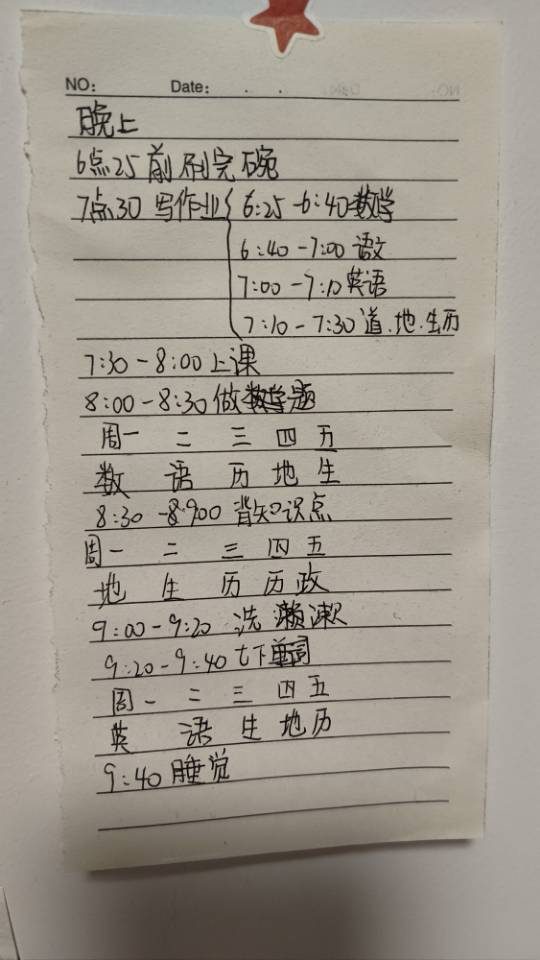 NO: Date: . .
晚上
6点25前刷完碗
7点30 写作业{ 6:25-6:40数学
6:40-7:00语文
7:00-7:10英语
7:10-7:30道.地.生历
7:30-8:00上课
8:00-8:30做数学题
周一 二 三 四 五
数 语 历 地 生
8:30-8900 背知识点
周一 二 三 四 五
地 生 历 历 政
9:00-9:20 洗漱
9:20-9:40 单词
周一 二 三 四 五
英 语 生 地 历
9:40睡觉